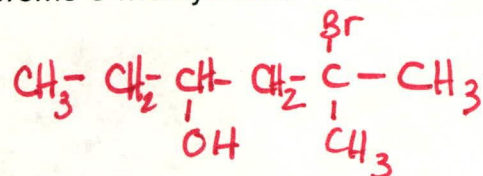 Br
CH3- CH2- CH- CH2- C - CH3
OH CH3